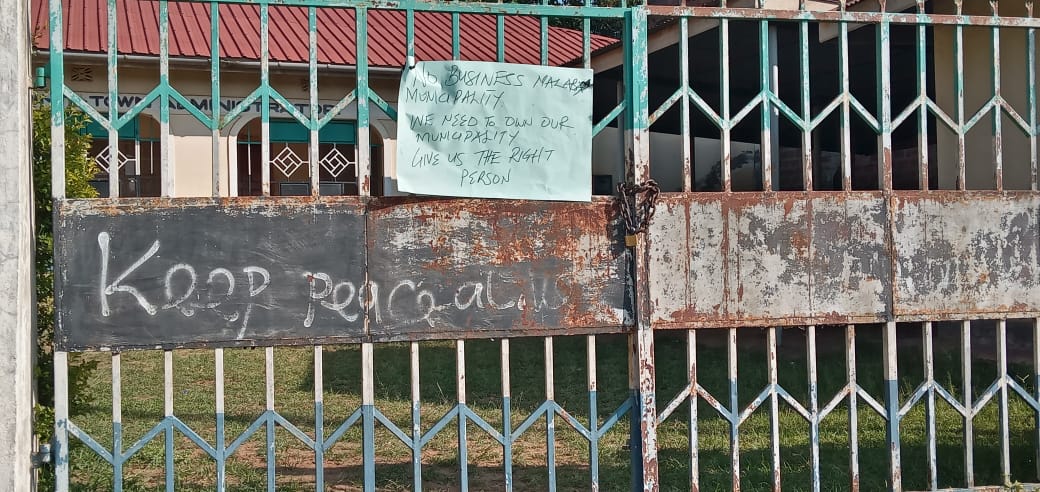 TOWN ADMINISTRATOR
NO BUSINESS MALABA
MUNICIPALITY.
WE NEED TO OWN OUR
MUNICIPALITY
GIVE US THE RIGHT
PERSON
Keep peace al